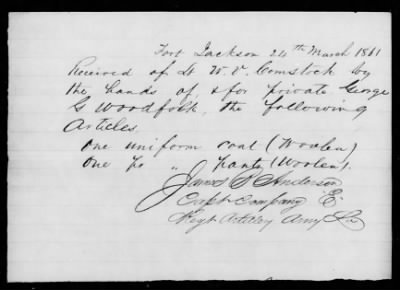 Fort Jackson 24th March 1861
Received of Lt W. V. Comstock by
the hands of & for private George
G Woodfolk, the following
Articles.
One uniform coat (Woolen)
One pr " pants (Woolen).
James B Anderson
Capt Company "E"
Regt Artillery Army La